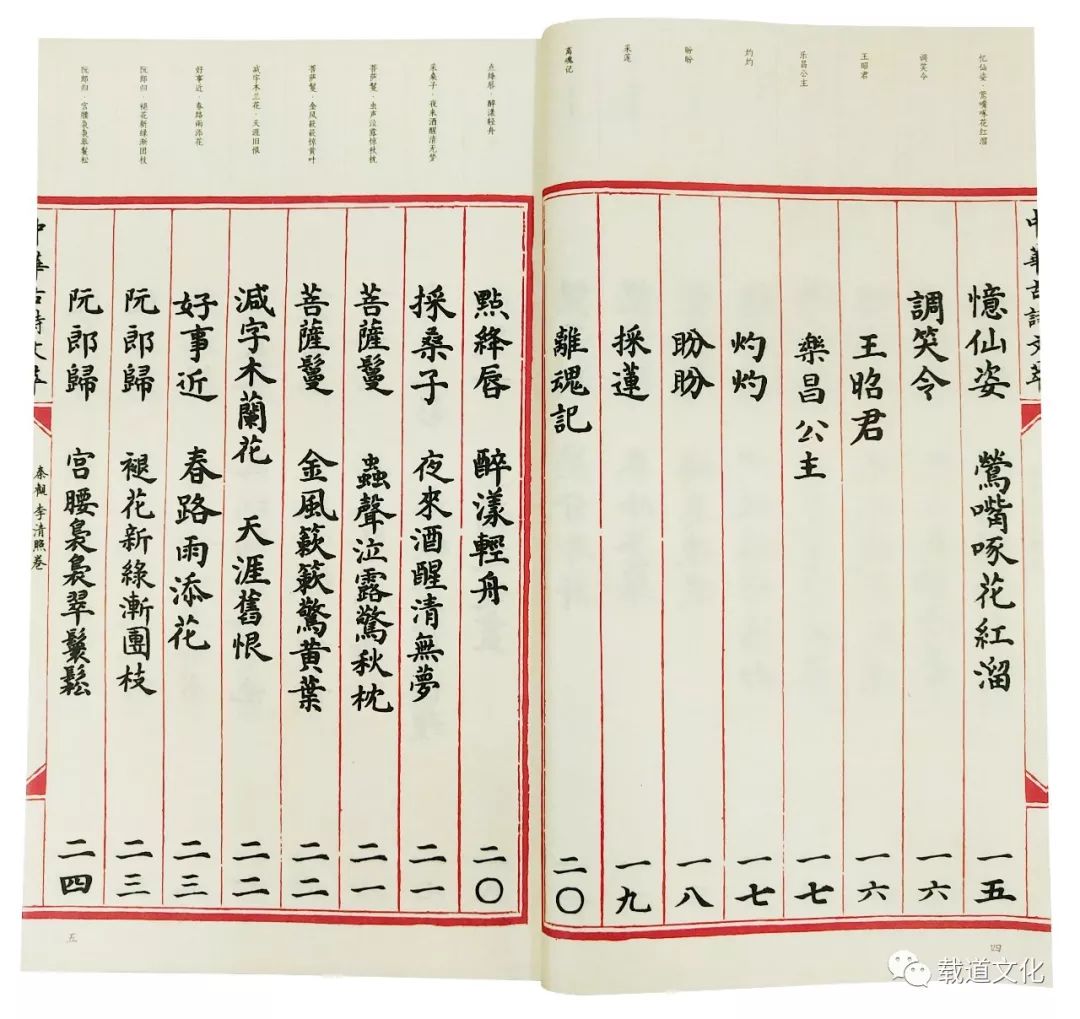 忆仙姿·莺嘴啄花红溜
调笑令
王昭君
乐昌公主
灼灼
盼盼
采莲
离魂记
憶仙姿 鶯嘴啄花紅溜 一五
調笑令 一六
王昭君 一六
樂昌公主 一七
灼灼 一七
盼盼 一八
採蓮 一九
離魂記 二〇
四
点绛唇·醉漾轻舟
采桑子·夜来酒醒清无梦
菩萨鬘·虫声泣露惊秋枕
菩萨鬘·金风簌簌惊黄叶
减字木兰花·天涯旧恨
好事近·春路雨添花
阮郎归·褪花新绿渐团枝
阮郎归·宫腰袅袅翠鬟松
點絳唇 醉漾輕舟 二〇
採桑子 夜來酒醒清無夢 二一
菩薩鬘 蟲聲泣露驚秋枕 二一
菩薩鬘 金風簌簌驚黄葉 二二
減字木蘭花 天涯舊恨 二二
好事近 春路雨添花 二三
阮郎歸 褪花新綠漸團枝 二三
阮郎歸 宫腰裊裊翠鬟鬆 二四
秦觀 李清照卷
五
载道文化